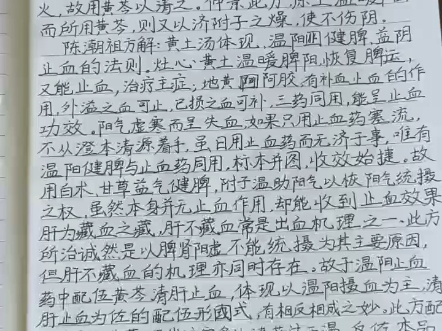 火，故用黄芩以清之。仲景此方
而所用黄芩，则又以济附子之燥，使不伤阴。
陈潮祖方解：黄土汤体现温阳健脾，益阴
止血的法则。灶心黄土温暖脾阳，恢复脾运，
又能止血，治疗主症；地黄阿胶，有补血止血的作
用，外溢之血可止，已损之血可补，三药同用，能呈止血
功效。阳气虚寒而呈失血，如果只用止血药塞流，
不从澄本清源着手，虽日用止血药而无济于事，唯有
温阳健脾与止血药同用，标本并图，收效始捷。故
用白术、甘草益气健脾，附子温助阳气以恢阳气统摄
之权，虽然本身并无止血作用，却能收到止血效果
肝为藏血之藏，肝不藏血常是出血机理之一。此方
所治诚然是以脾肾阳虚不能统摄为其主要原因，
但肝不藏血的机理亦同时存在。故于温阳止血
药中配伍黄芩清肝止血，体现以温阳摄血为主，清
肝止血为佐的配伍形式，有相反相成之妙。此方配